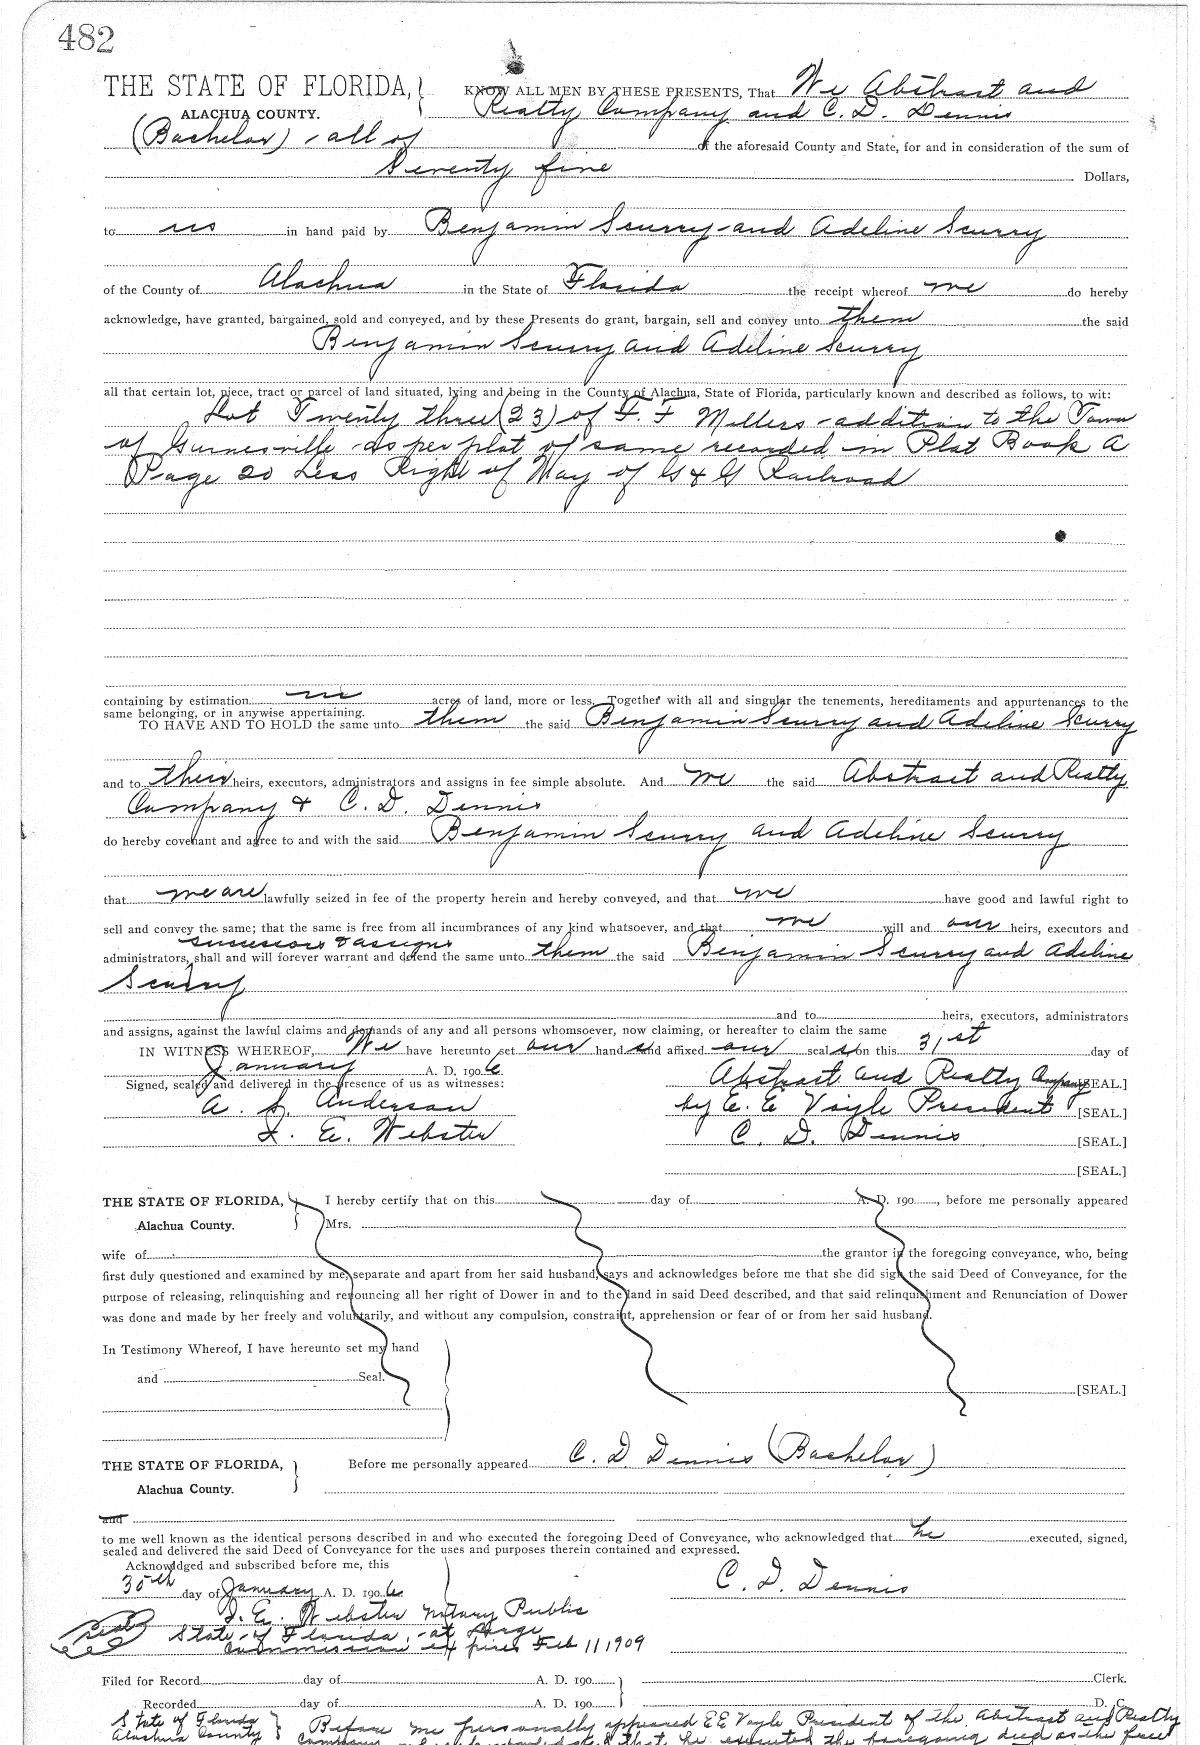 482
THE STATE OF FLORIDA, KNOW ALL MEN BY THESE PRESENTS, That We Abstract and
ALACHUA COUNTY. Realty Company and C. D. Dennis
(Bachelor) all of of the aforesaid County and State, for and in consideration of the sum of
Seventy five Dollars,
to us in hand paid by Benjamin Scurry and Adeline Scurry
of the County of Alachua in the State of Florida the receipt whereof we do hereby
acknowledge, have granted, bargained, sold and conveyed, and by these Presents do grant, bargain, sell and convey unto them the said
Benjamin Scurry and Adeline Scurry
all that certain lot, piece, tract or parcel of land situated, lying and being in the County of Alachua, State of Florida, particularly known and described as follows, to wit:
Lot Twenty three (23) of F. F Millers addition to the Town
of Gainesville as per plat of same recorded in Plat Book A
Page 20 Less Right of Way of G & G Railroad
containing by estimation acres of land, more or less. Together with all and singular the tenements, hereditaments and appurtenances to the
same belonging, or in anywise appertaining.
TO HAVE AND TO HOLD the same unto them the said Benjamin Scurry and Adeline Scurry
and to their heirs, executors, administrators and assigns in fee simple absolute. And we the said Abstract and Realty
Company & C. D. Dennis
do hereby covenant and agree to and with the said Benjamin Scurry and Adeline Scurry
that we are lawfully seized in fee of the property herein and hereby conveyed, and that we have good and lawful right to
sell and convey the same; that the same is free from all incumbrances of any kind whatsoever, and that we will and our heirs, executors and
successors & assigns
administrators, shall and will forever warrant and defend the same unto them the said Benjamin Scurry and Adeline
Scurry
and to heirs, executors, administrators
and assigns, against the lawful claims and demands of any and all persons whomsoever, now claiming, or hereafter to claim the same
IN WITNESS WHEREOF, We have hereunto set our hands and affixed our seals on this 31st day of
January A. D. 1906
Signed, sealed and delivered in the presence of us as witnesses: Abstract and Realty Company [SEAL.]
Anderson by E. E Voyle President [SEAL.]
E. Webster C. D. Dennis [SEAL.]
[SEAL.]
THE STATE OF FLORIDA, I hereby certify that on this day of A. D. 190 , before me personally appeared
Alachua County. Mrs.
wife of the grantor in the foregoing conveyance, who, being
first duly questioned and examined by me, separate and apart from her said husband, says and acknowledges before me that she did sign the said Deed of Conveyance, for the
purpose of releasing, relinquishing and renouncing all her right of Dower in and to the land in said Deed described, and that said relinquishment and Renunciation of Dower
was done and made by her freely and voluntarily, and without any compulsion, constraint, apprehension or fear of or from her said husband.
In Testimony Whereof, I have hereunto set my hand
and Seal.
[SEAL.]
THE STATE OF FLORIDA, Before me personally appeared C. D Dennis (Bachelor)
Alachua County.
and
to me well known as the identical persons described in and who executed the foregoing Deed of Conveyance, who acknowledged that he executed, signed,
sealed and delivered the said Deed of Conveyance for the uses and purposes therein contained and expressed.
Acknowledged and subscribed before me, this
30th day of January A. D. 1906 C. D. Dennis
E. Webster Notary Public
Seal State of Florida, at Large
Commission expires Feb 11 1909
Filed for Record day of A. D. 190 Clerk.
Recorded day of A. D. 190 D. C.
State of Florida
Alachua County
Before me personally appeared E E Voyle President of the Abstract and Realty
Company that he executed the foregoing deed as the free